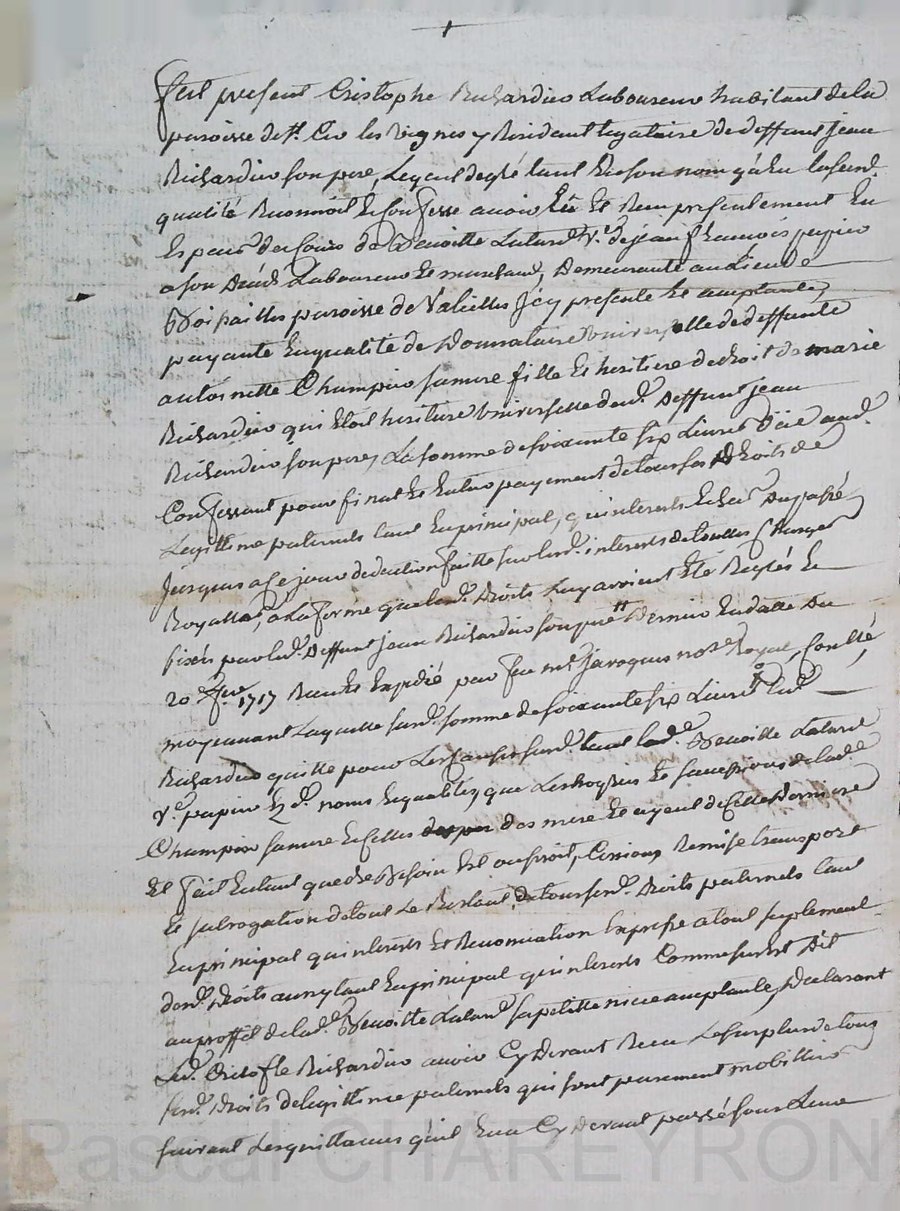 fut present Cristophe Richardier Laboureur habitant de la
paroisse de st. Cir les vignes y Residant legataire de deffunt jean
Richardier son pere, Lequel de gré tant En son nom qu'En lasusd.
qualité Reconnoit Et Confesse avoir Eü Et Receu presentement En
Especes de Cours de Benoitte Latard ve. de jean françois papier
a son deces Laboureur Et marchand, Demeurante au Lieu de
paroisse de Valeilles jcy presente Et acceptante,
payante En qualité de Donnataire universselle de deffunte
antoinette Champier sa mere fille Et heritiere de droit de marie
Richardier qui Etoit heritiere universselle dud. deffunt jean
Richardier son pere, La somme de soixante six Livres
Confessant pour final Et Entier payement de tous ses Droits de
Legitime paternels tant En principal, qu'interets Echeus Du passé
jusques a Ce jour deduction faitte sur lesd. interets de touttes Charges
Royalles, a La forme que lesd. Droits Luy avoient Eté Reglés Et
fixés par led. Deffunt jean Richardier son pere Dernier En datte Du
20e. 1717 Receu Et Expedié par feu me. javogues nore. Royal, Conllé,
moyennant Laquelle susd. somme de soixante six Livres Led.
Richardier quitte pour Les Causes susd. tant lade. Benoitte Latard
ve. papier Ezd. noms Et qualités, que Les hoyries Et successions de lade.
Champier sa mere Et Celles des mere Et ayeul de Cette Derniere
Et fait En tant que de Besoin Est ou seroit, Cession, Remise transport
Et subrogation de tout Le Restant de tous sesd. Droits paternels tant
En principal qu'interets Et Renonciation Expresse a tout suplement
desd. Droits aussy tant En principal qu'interets Comme sus Est Dit
au proffit de lad. Benoitte Latard sa petitte niece acceptante, Declarant
Led. Cristofle Richardier avoir Cy Devant Receu Le surplus de tous
sesd. Droits de legitime paternels qui sont purement mobilliers
suivant Les quittances qu'il En a Cy Devant passé sous Leur
Pascal CHAREYRON